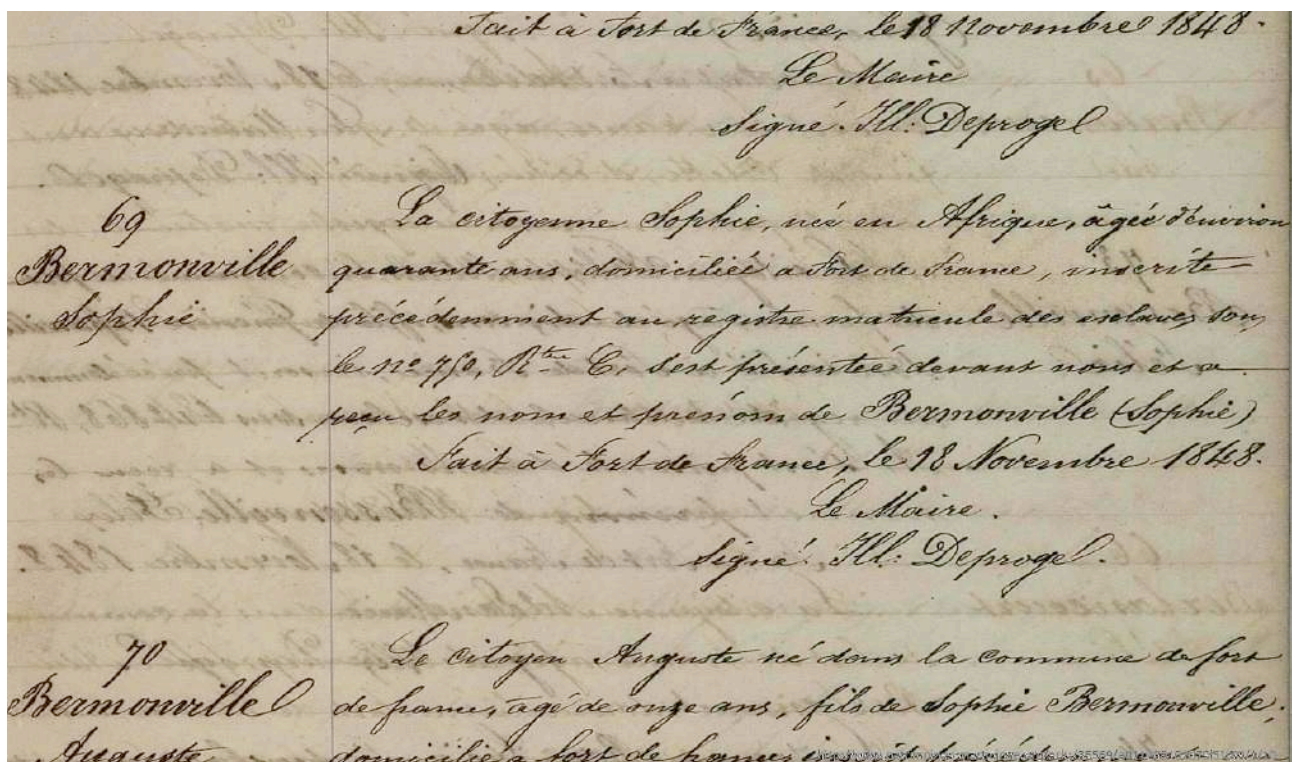 Fait à Fort de France, le 18 Novembre 1848.
Le Maire
Signé. Ill: Deprogel
69
Bermonville
Sophie
La citoyenne Sophie, née en Afrique, âgée d'environ
quarante ans, domiciliée a Fort de France, inscrite
précédemment au registre matricule des esclaves sous
le no 750, Rtre C. s'est présentée devant nous et a
reçu les nom et prénom de Bermonville (Sophie)
Fait à Fort de France, le 18 Novembre 1848.
Le Maire.
Signé. Ill: Deprogel.
70
Bermonville
Auguste
Le citoyen Auguste né dans la commune de fort
de france, âgé de onze ans, fils de Sophie Bermonville,
domicilié a fort de france